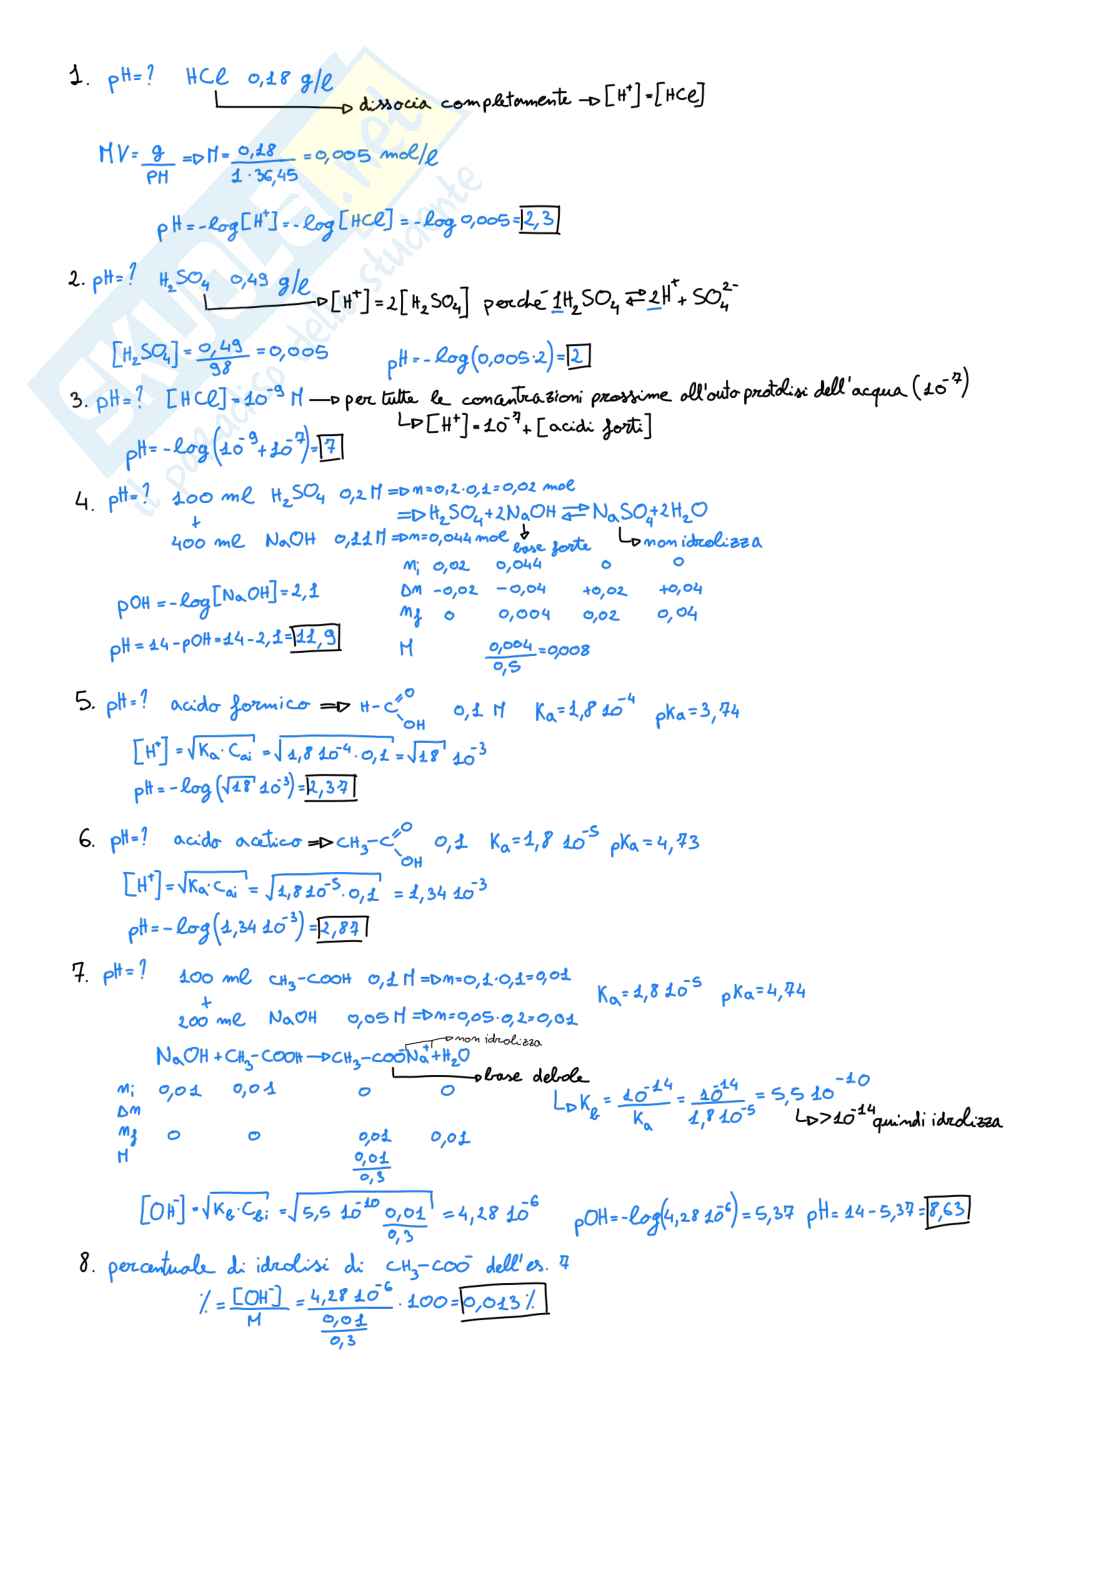 1. pH=? HCl 0,18 g/l
dissocia completamente → [H⁺]=[HCl]
MV= g/PM => M= 0,18/1·36,45 = 0,005 mol/l
pH=-log[H⁺]=-log[HCl]=-log 0,005=2,3
2. pH=? H₂SO₄ 0,49 g/l
→ [H⁺]=2[H₂SO₄] perché 1H₂SO₄ ⇄ 2H⁺+SO₄²⁻
[H₂SO₄]= 0,49/98 =0,005 pH=-log(0,005·2)=2
3. pH=? [HCl]=10⁻⁹ M → per tutte le concentrazioni prossime all'auto protolisi dell'acqua (10⁻⁷)
↳ [H⁺]=10⁻⁷+[acidi forti]
pH=-log(10⁻⁹+10⁻⁷)=7
4. pH=? 100 ml H₂SO₄ 0,2 M => n=0,2·0,1=0,02 mol
+ => H₂SO₄+2NaOH ⇄ NaSO₄+2H₂O
400 ml NaOH 0,11 M => n=0,044 mol base forte ↳ non idrolizza
ni 0,02 0,044 0 0
Δn -0,02 -0,04 +0,02 +0,04
pOH=-log[NaOH]=2,1
nf 0 0,004 0,02 0,04
pH=14-pOH=14-2,1=11,9
M 0,004/0,5 =0,008
5. pH=? acido formico => H-C=O OH 0,1 M Ka=1,8 10⁻⁴ pKa=3,74
[H⁺]=√Ka·Cai = √1,8 10⁻⁴·0,1 = √18 10⁻³
pH=-log(√18 10⁻³)=2,37
6. pH=? acido acetico => CH₃-C=O OH 0,1 Ka=1,8 10⁻⁵ pKa=4,73
[H⁺]=√Ka·Cai = √1,8 10⁻⁵·0,1 = 1,34 10⁻³
pH=-log(1,34 10⁻³)=2,87
7. pH=? 100 ml CH₃-COOH 0,1 M => n=0,1·0,1=0,01
+ Ka=1,8 10⁻⁵ pKa=4,74
200 ml NaOH 0,05 M => n=0,05·0,2=0,01
→ non idrolizza
NaOH+CH₃-COOH → CH₃-COO⁻Na⁺+H₂O
→ base debole
ni 0,01 0,01 0 0
↳ Kb= 10⁻¹⁴/Ka = 10⁻¹⁴/1,8 10⁻⁵ = 5,5 10⁻¹⁰
Δn
↳ >10⁻¹⁴ quindi idrolizza
nf 0 0 0,01 0,01
M 0,01/0,3
[OH⁻]=√Kb·Cbi = √5,5 10⁻¹⁰ 0,01/0,3 = 4,28 10⁻⁶ pOH=-log(4,28 10⁻⁶)=5,37 pH=14-5,37=8,63
8. percentuale di idrolisi di CH₃-COO⁻ dell'es. 7
%= [OH⁻]/M = 4,28 10⁻⁶/0,01/0,3 ·100=0,013%
SKUOLA.net
il paradiso dello studente